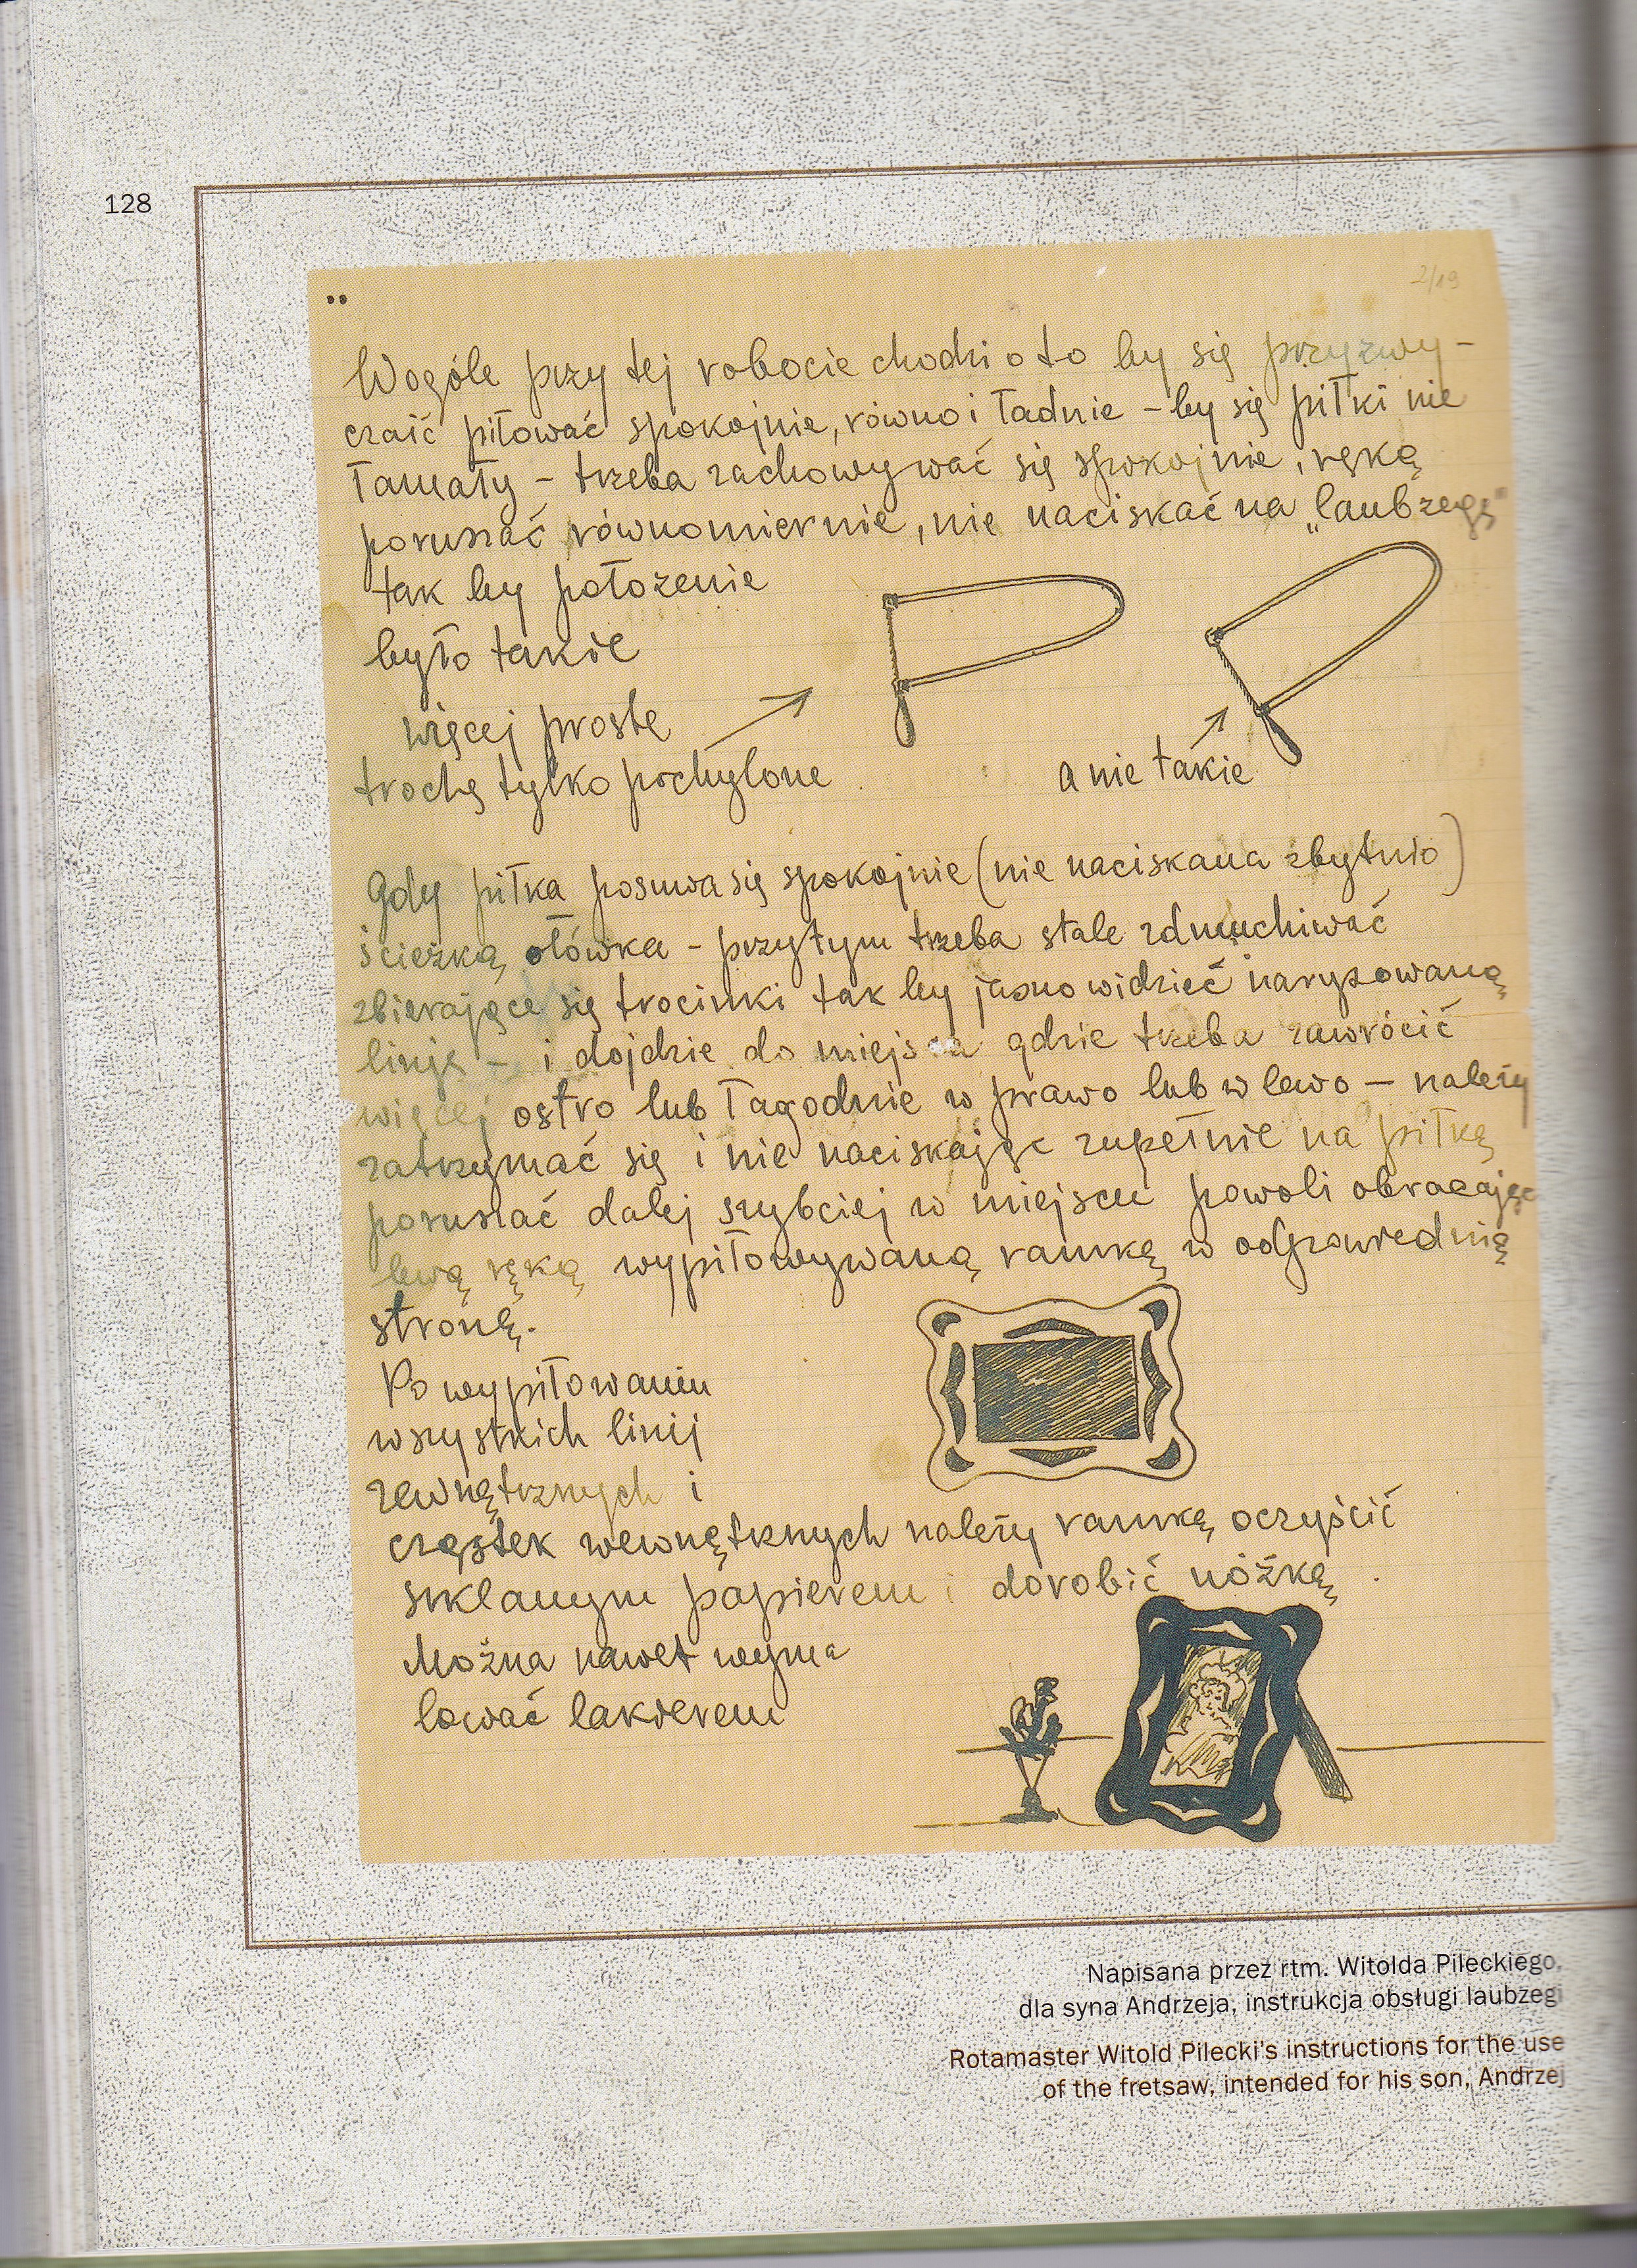 128
2/19
Wogóle przy tej robocie chodzi o to by się przyzwy-
czaić piłować spokojnie, równo i ładnie – by się piłki nie
łamały – trzeba zachowywać się spokojnie, ręką
poruszać równomiernie, nie naciskać na „laubzegę"
tak by położenie
było takie
więcej proste
trochę tylko pochylone
a nie takie
Gdy piłka posuwa się spokojnie (nie naciskana zbytnio)
ścieżką ołówka – przytym trzeba stale zdmuchiwać
zbierające się trocinki tak by jasno widzieć narysowaną
linję – i dojdzie do miejsca gdzie trzeba zawrócić
więcej ostro lub łagodnie w prawo lub w lewo – należy
zatrzymać się i nie naciskając zupełnie na piłkę
poruszać dalej szybciej w miejscu powoli obracając
lewą ręką wypiłowywaną ramkę w odpowiednią
stronę.
Po wypiłowaniu
wszystkich linij
zewnętrznych i
cząstek wewnętrznych należy ramkę oczyścić
szklanym papierem i dorobić nóżkę.
Można nawet wyma
lować lakierem
Napisana przez rtm. Witolda Pileckiego,
dla syna Andrzeja, instrukcja obsługi laubzegi
Rotamaster Witold Pilecki's instructions for the use
of the fretsaw, intended for his son, Andrzej